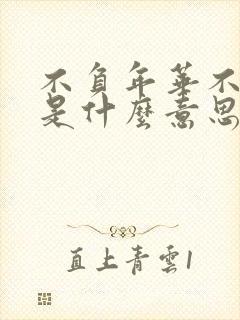 不負年華不
是什麼意思
直上青雲1